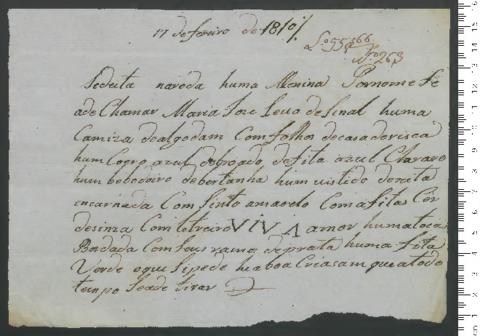 17 de fevreiro de 1810
Lo 55 f 66
No 263
Sedeita naroda huma Menina Pornome Se
ade Chamar Maria Joze Leva de Sinal huma
Camiza de algodam Com folhos de casa derisca
hum Copro azul debroado de fita azul Claro
hum bebedoiro debertanha hum vistido de xita
encarnada Com Sinto amarelo Com afitas Cor
desinza Com letreiro VIVA amor huma toca
Bordada Com seus ramos de prata huma fita
Verde oque Sipede he a boa Criasam que atodo
tempo Seade tirar